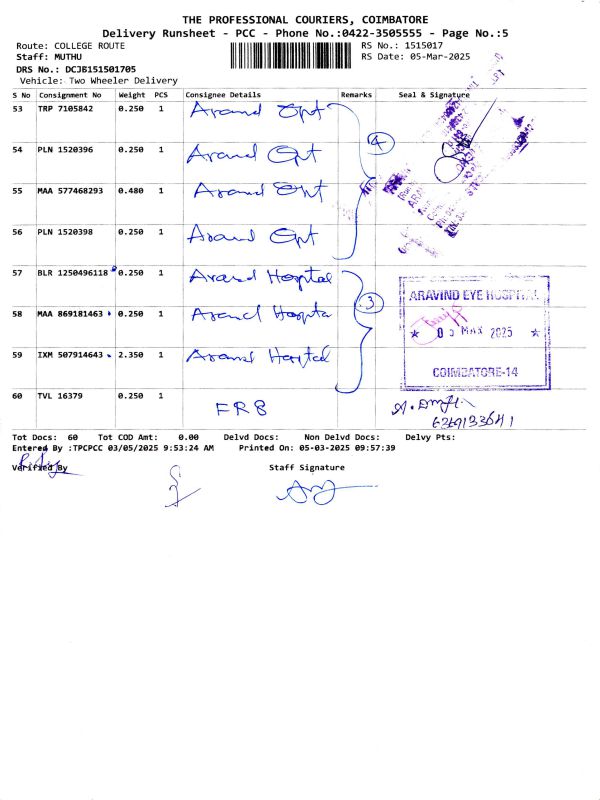 THE PROFESSIONAL COURIERS, COIMBATORE
Delivery Runsheet - PCC - Phone No.:0422-3505555 - Page No.:5
Route: COLLEGE ROUTE RS No.: 1515017
Staff: MUTHU RS Date: 05-Mar-2025
DRS No.: DCJB151501705
Vehicle: Two Wheeler Delivery
S No Consignment No Weight PCS Consignee Details Remarks Seal & Signature
53 TRP 7105842 0.250 1 Aravind Opt
54 PLN 1520396 0.250 1 Aravind Opt
4
55 MAA 577468293 0.480 1 Aravind Opt
56 PLN 1520398 0.250 1 Aravind Opt
57 BLR 1250496118 0.250 1 Aravind Hospital
3
ARAVIND EYE HOSPITAL
58 MAA 869181463 0.250 1 Aravind Hospital
★ 05 MAR 2025 ★
59 IXM 507914643 2.350 1 Aravind Hospital
COIMBATORE-14
60 TVL 16379 0.250 1 FRB
Tot Docs: 60 Tot COD Amt: 0.00 Delvd Docs: Non Delvd Docs: Delvy Pts:
Entered By :TPCPCC 03/05/2025 9:53:24 AM Printed On: 05-03-2025 09:57:39
Verified By Staff Signature